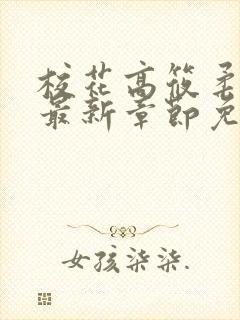 校花高筱柔
最新章节免
女孩柒柒.